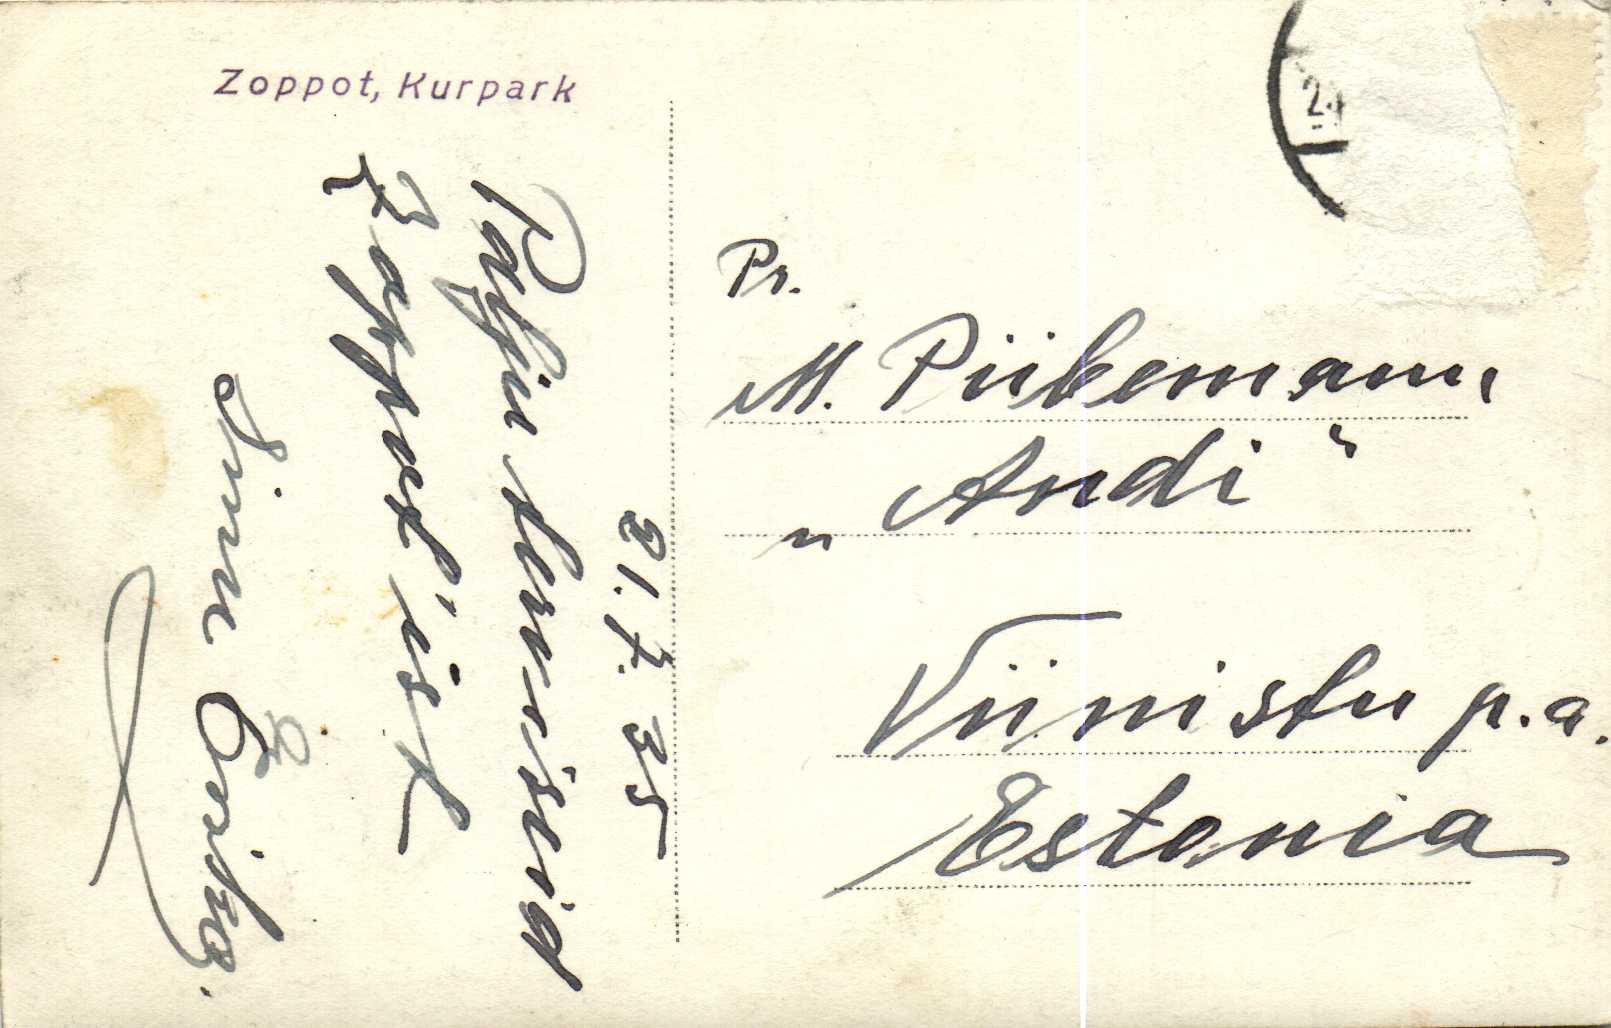 Zoppot, Kurpark
21.7.35
Palju terviseid
Zoppot'ist
Sinu Erika.
Pr.
M. Piibemann
„Andi“
Viinistu p.a.
Estonia